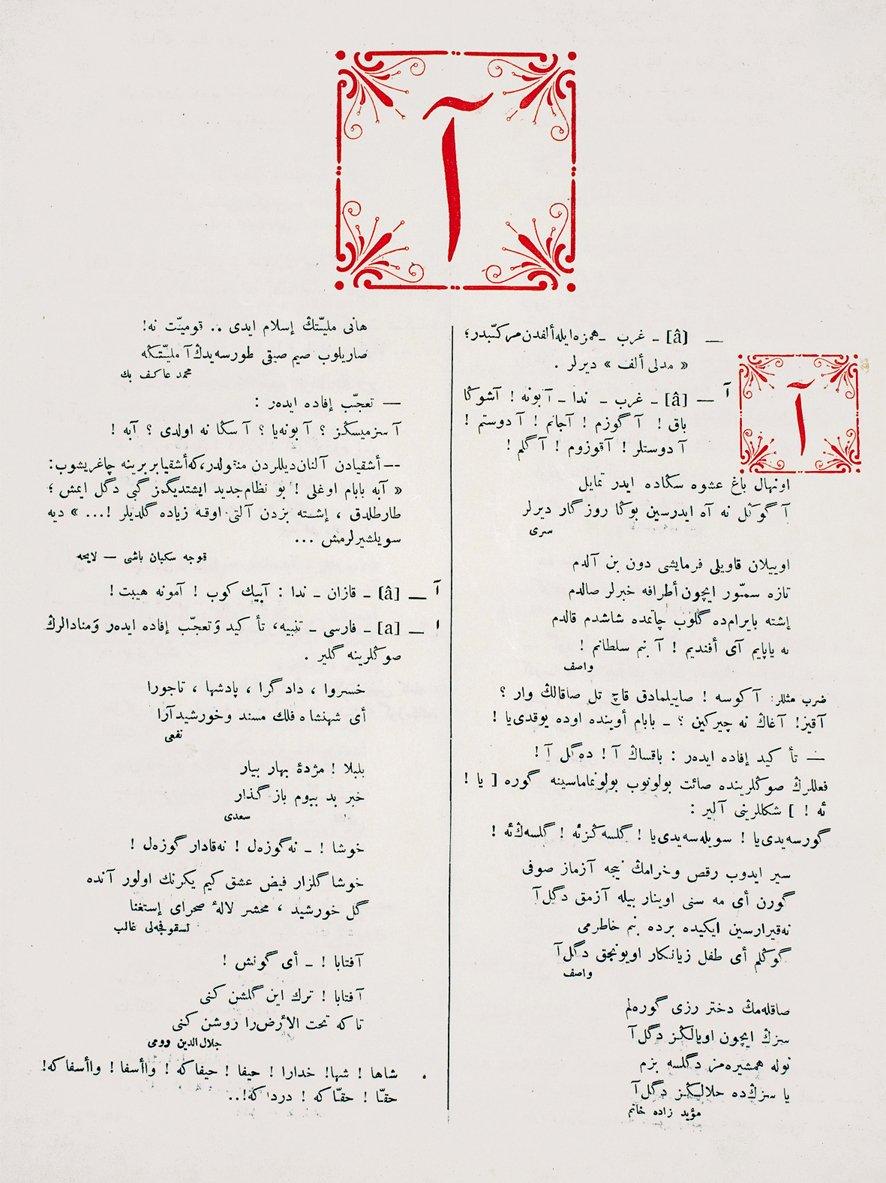 آ
آ
— [â] ـ غرب ـ همزه ايله ألفدن مركّبدر؛
« مدلى ألف » ديرلر .
آ — [â] ـ غرب ـ ندا ـ آ بونه ! آ شوكا
باق ! آ گوزم ! آ جانم ! آ دوستم !
آ دوستلر ! آ قوزوم ! آ گلم !
اونهال باغ عشوه سڭاده ايدر تمايل
آ گوڭل نه آه ايدرسين بوڭا روزگار ديرلر
سرى
اوييلان قاويلى فرمايشى دون بن آلدم
تازه سمّور ايچون أطرافه خبرلر صالدم
إشته بايرامده گلوب چاتمده شاشدم قالدم
نه ياپايم آى أفنديم ! آ بنم سلطانم !
واصف
ضرب مثللر: آ كوسه ! صاييلمادق قاچ تل صاقالڭ وار ؟
آ قيز! آغاڭ نه چيركين ؟ ـ بابام أوينده اوده يوقدى يا !
— تأ كيد إفاده ايدەر : باقساڭ آ ! دەگل آ !
فعللرڭ صوڭلرينده صائت بولونوب بولونماماسينه گوره [ يا !
ئه ! ] شكللرينى آلير :
گورسه يدى يا ! سويله سه يدى يا ! گلسه ڭز ئه ! گلسه ڭ ئه !
سير ايدوب رقص وخرامڭ نيجه آزماز صوفى
گورن أى مه سنى اوينار بيله آزمق دگل آ
نه قيرارسين ايكيده برده بنم خاطرمى
گوڭلم أى طفل زيانكار اويونجق دگل آ
واصف
صاقله مڭ دختر رزى گوره لم
سزڭ ايچون اويالڭز دگل آ
نوله همشيره مز دگلسه بزم
يا سزڭ ده حلالڭز دگل آ
مؤيد زاده خاتم
هانى مليّتڭ إسلام ايدى .. قوميّت نه!
صاريلوب صيم صيقى طورسه يدڭ آ مليّتڭه
محمد عاكف بك
— تعجّب إفاده ايدەر :
آ سزميسڭز ؟ آ بونه يا ؟ آ سڭا نه اولدى ؟ آ به !
-- أشقيادن آلنان ديللردن منقولدر، كه أشقيا بربرينه چاغريشوب:
« آ به بابام اوغلى ! بو نظام جديد ايشتديگمز گبى دگل ايمش ؛
طارطلدق ، إشته بزدن آلتى اوقه زياده گلديلر !... » ديه
سويلشيرلرمش ...
قوجه سكبان باشى — لايحه
آ — [â] ـ قازان ـ ندا : آبيك كوب ! آ مونه هيبت !
ا — [a] ـ فارسى ـ تنبيه، تأ كيد وَتعجّب إفاده ايدەر وَمنادالرڭ
صوڭلرينه گلير .
خسروا ، داد گرا ، پادشها ، تاجورا
أى شهنشاه فلك مسند وخورشيد آرا
نفعى
بلبلا ! مژدۀ بهار بيار
خبر بد ببوم باز گذار
سعدى
خوشا ! ـ نه گوزەل ! نه قادار گوزەل !
خوشا گلزار فيض عشق كيم يكرنك اولور آنده
گل خورشيد ، محشر لالۀ صحراى إستغنا
لسقوفچه لى غالب
آفتابا ! ـ أى گونش !
آفتابا ! ترك اين گلشن كنى
تاكه تحت الأرض را روشن كنى
جلال الدين رومى
شاها ! شها! خدارا ! حيفا ! حيفا كه ! واأسفا ! واأسفا كه!
حقّا ! حقّا كه ! دردا كه!..